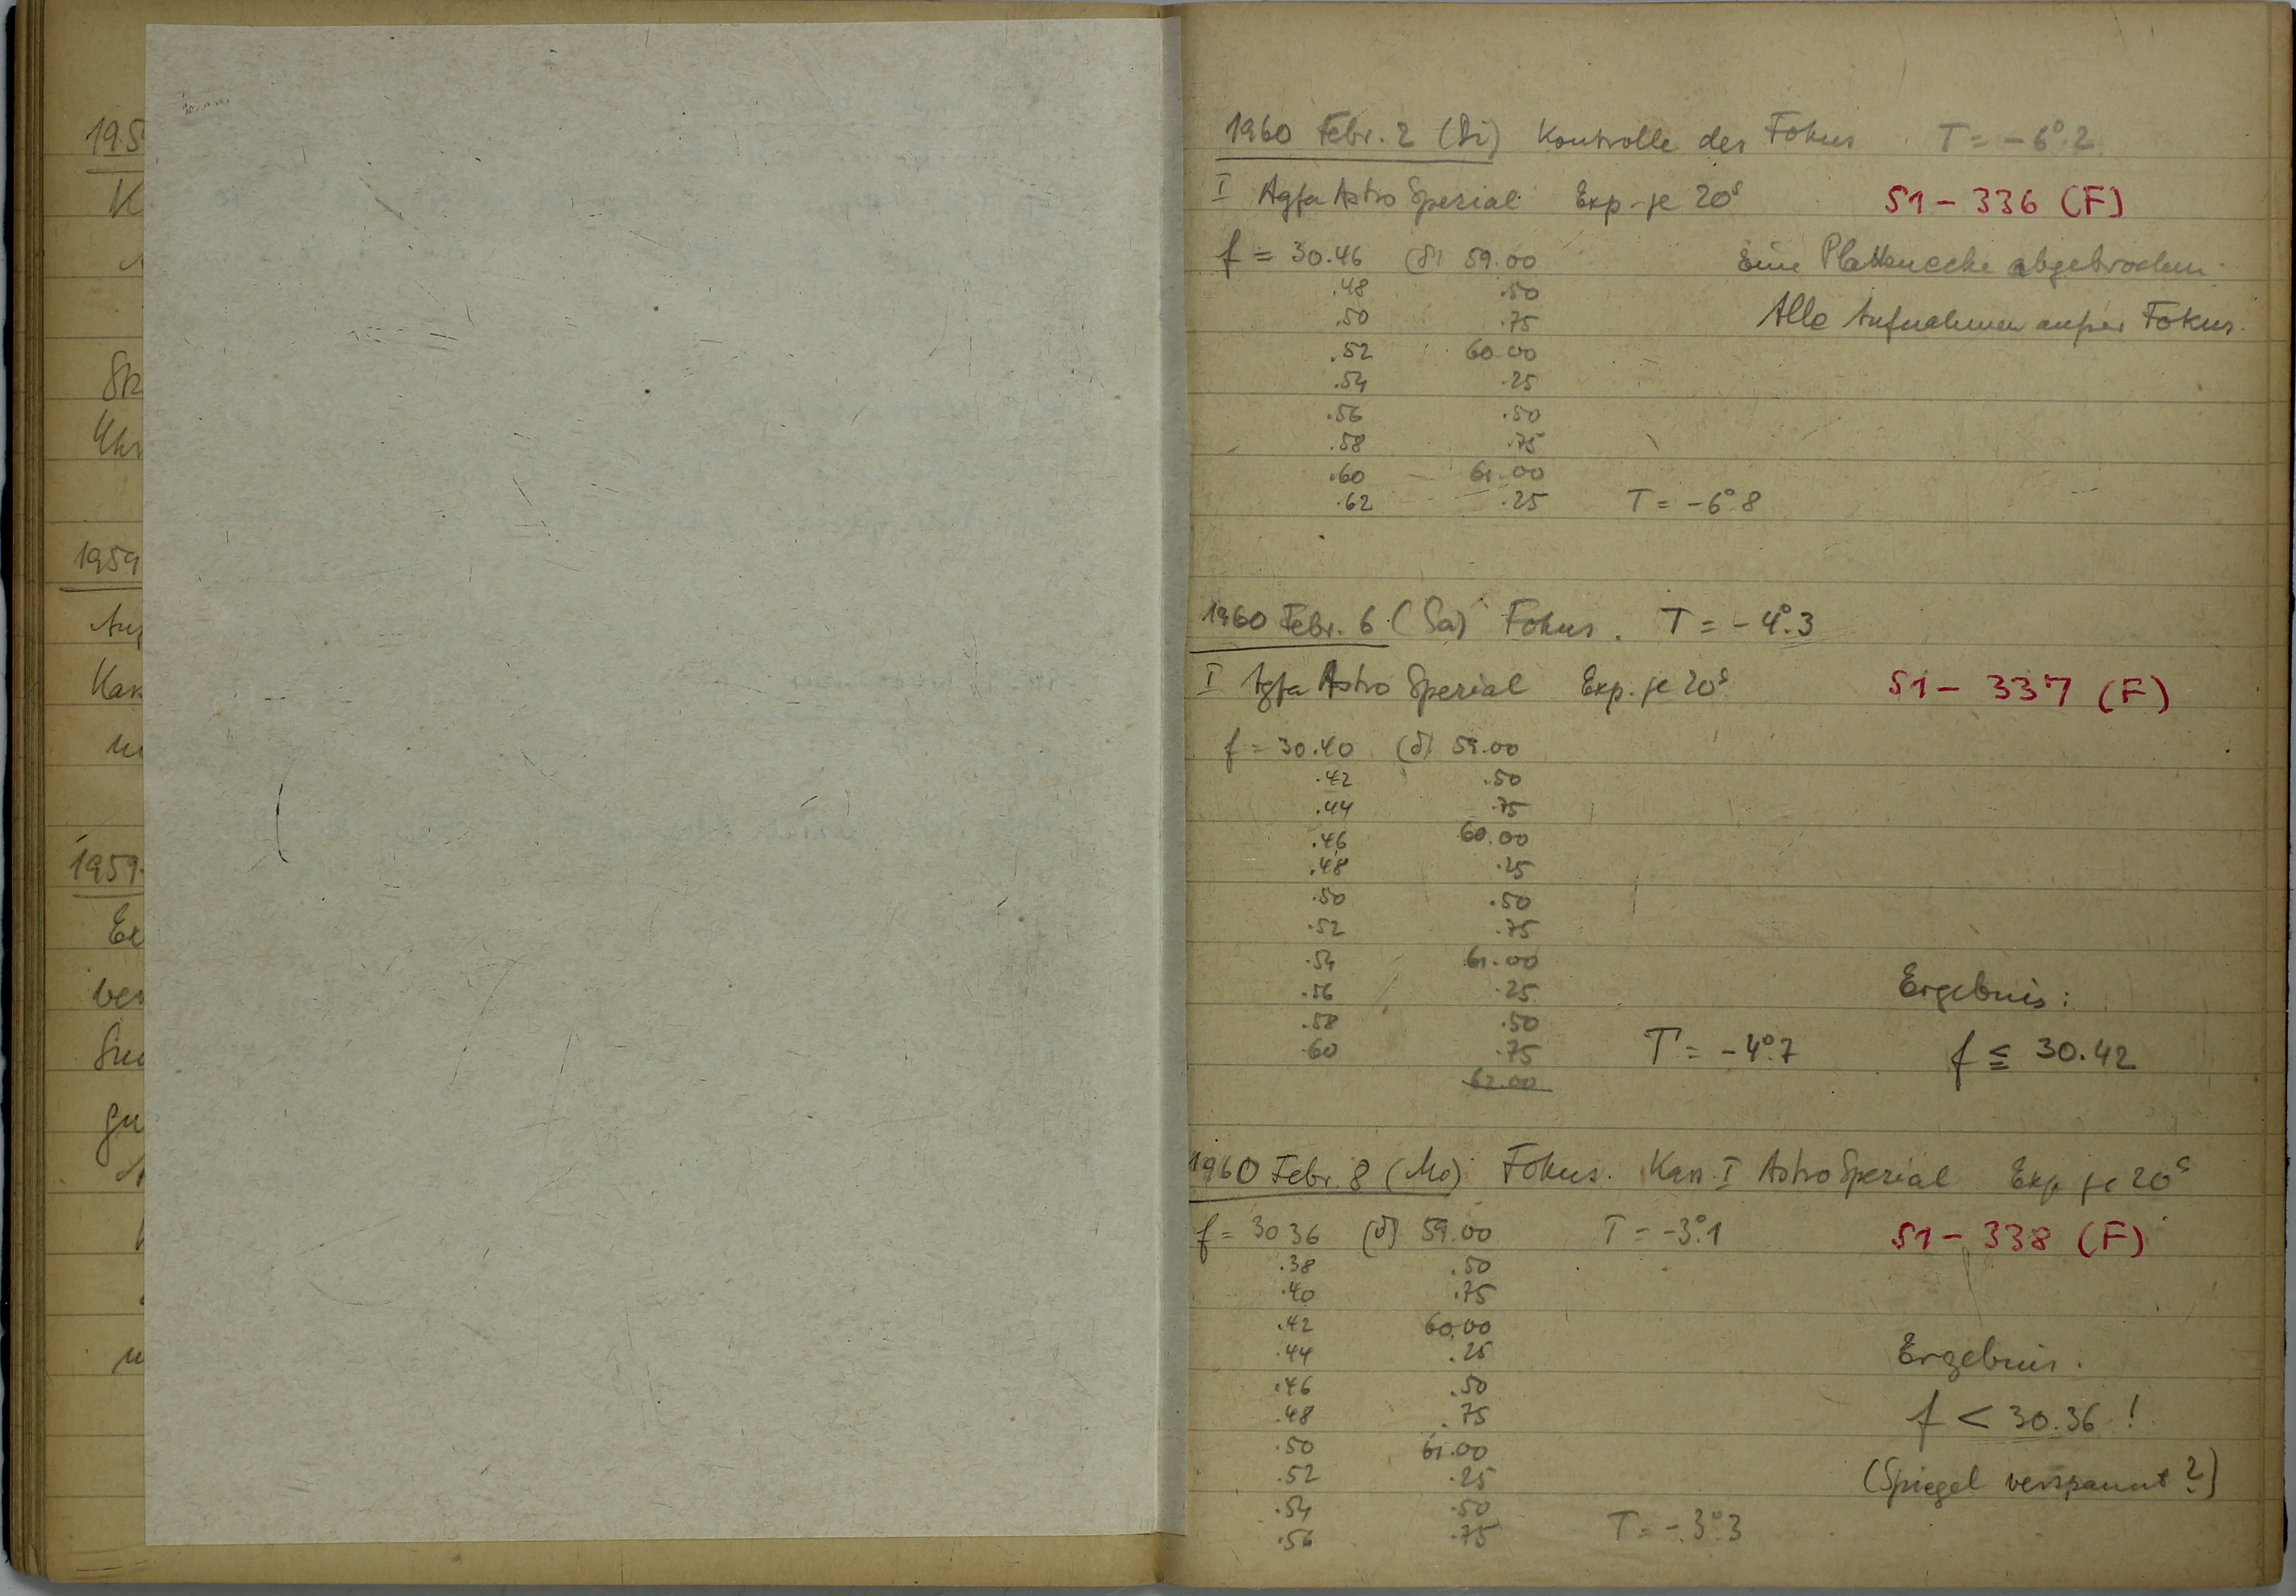 19.5
K
Uhr
1959
Kas
1959.
Ex
ver
gu
1960 Febr. 2 (Di) Kontrolle des Fokus T = -6°.2
I Agfa Astro Spezial Exp. je 20s S1 - 336 (F)
f = 30.46 (δ) 59.00 Eine Plattenecke abgebrochen.
.48 .50
.50 .75 Alle Aufnahmen außer Fokus.
.52 60.00
.54 .25
.56 .50
.58 .75
.60 61.00
.62 .25 T = -6°.8
1960 Febr. 6 (Sa) Fokus. T = -4°.3
I Agfa Astro Spezial Exp. je 20s S1 - 337 (F)
f = 30.40 (δ) 59.00
.42 .50
.44 .75
.46 60.00
.48 .25
.50 .50
.52 .75
.54 61.00
.56 .25 Ergebnis:
.58 .50
.60 .75 T = -4°.7 f ≦ 30.42
62.00
1960 Febr. 8 (Mo) Fokus. Kass. I Astro Spezial Exp. je 20s
f = 30 36 (δ) 59.00 T = -3°.1 S1 - 338 (F)
.38 .50
.40 .75
.42 60.00
.44 .25 Ergebnis.
.46 .50
.48 .75 f < 30.36 !
.50 61.00
.52 .25 (Spiegel verspannt?)
.54 .50
.56 .75 T = -3°.3